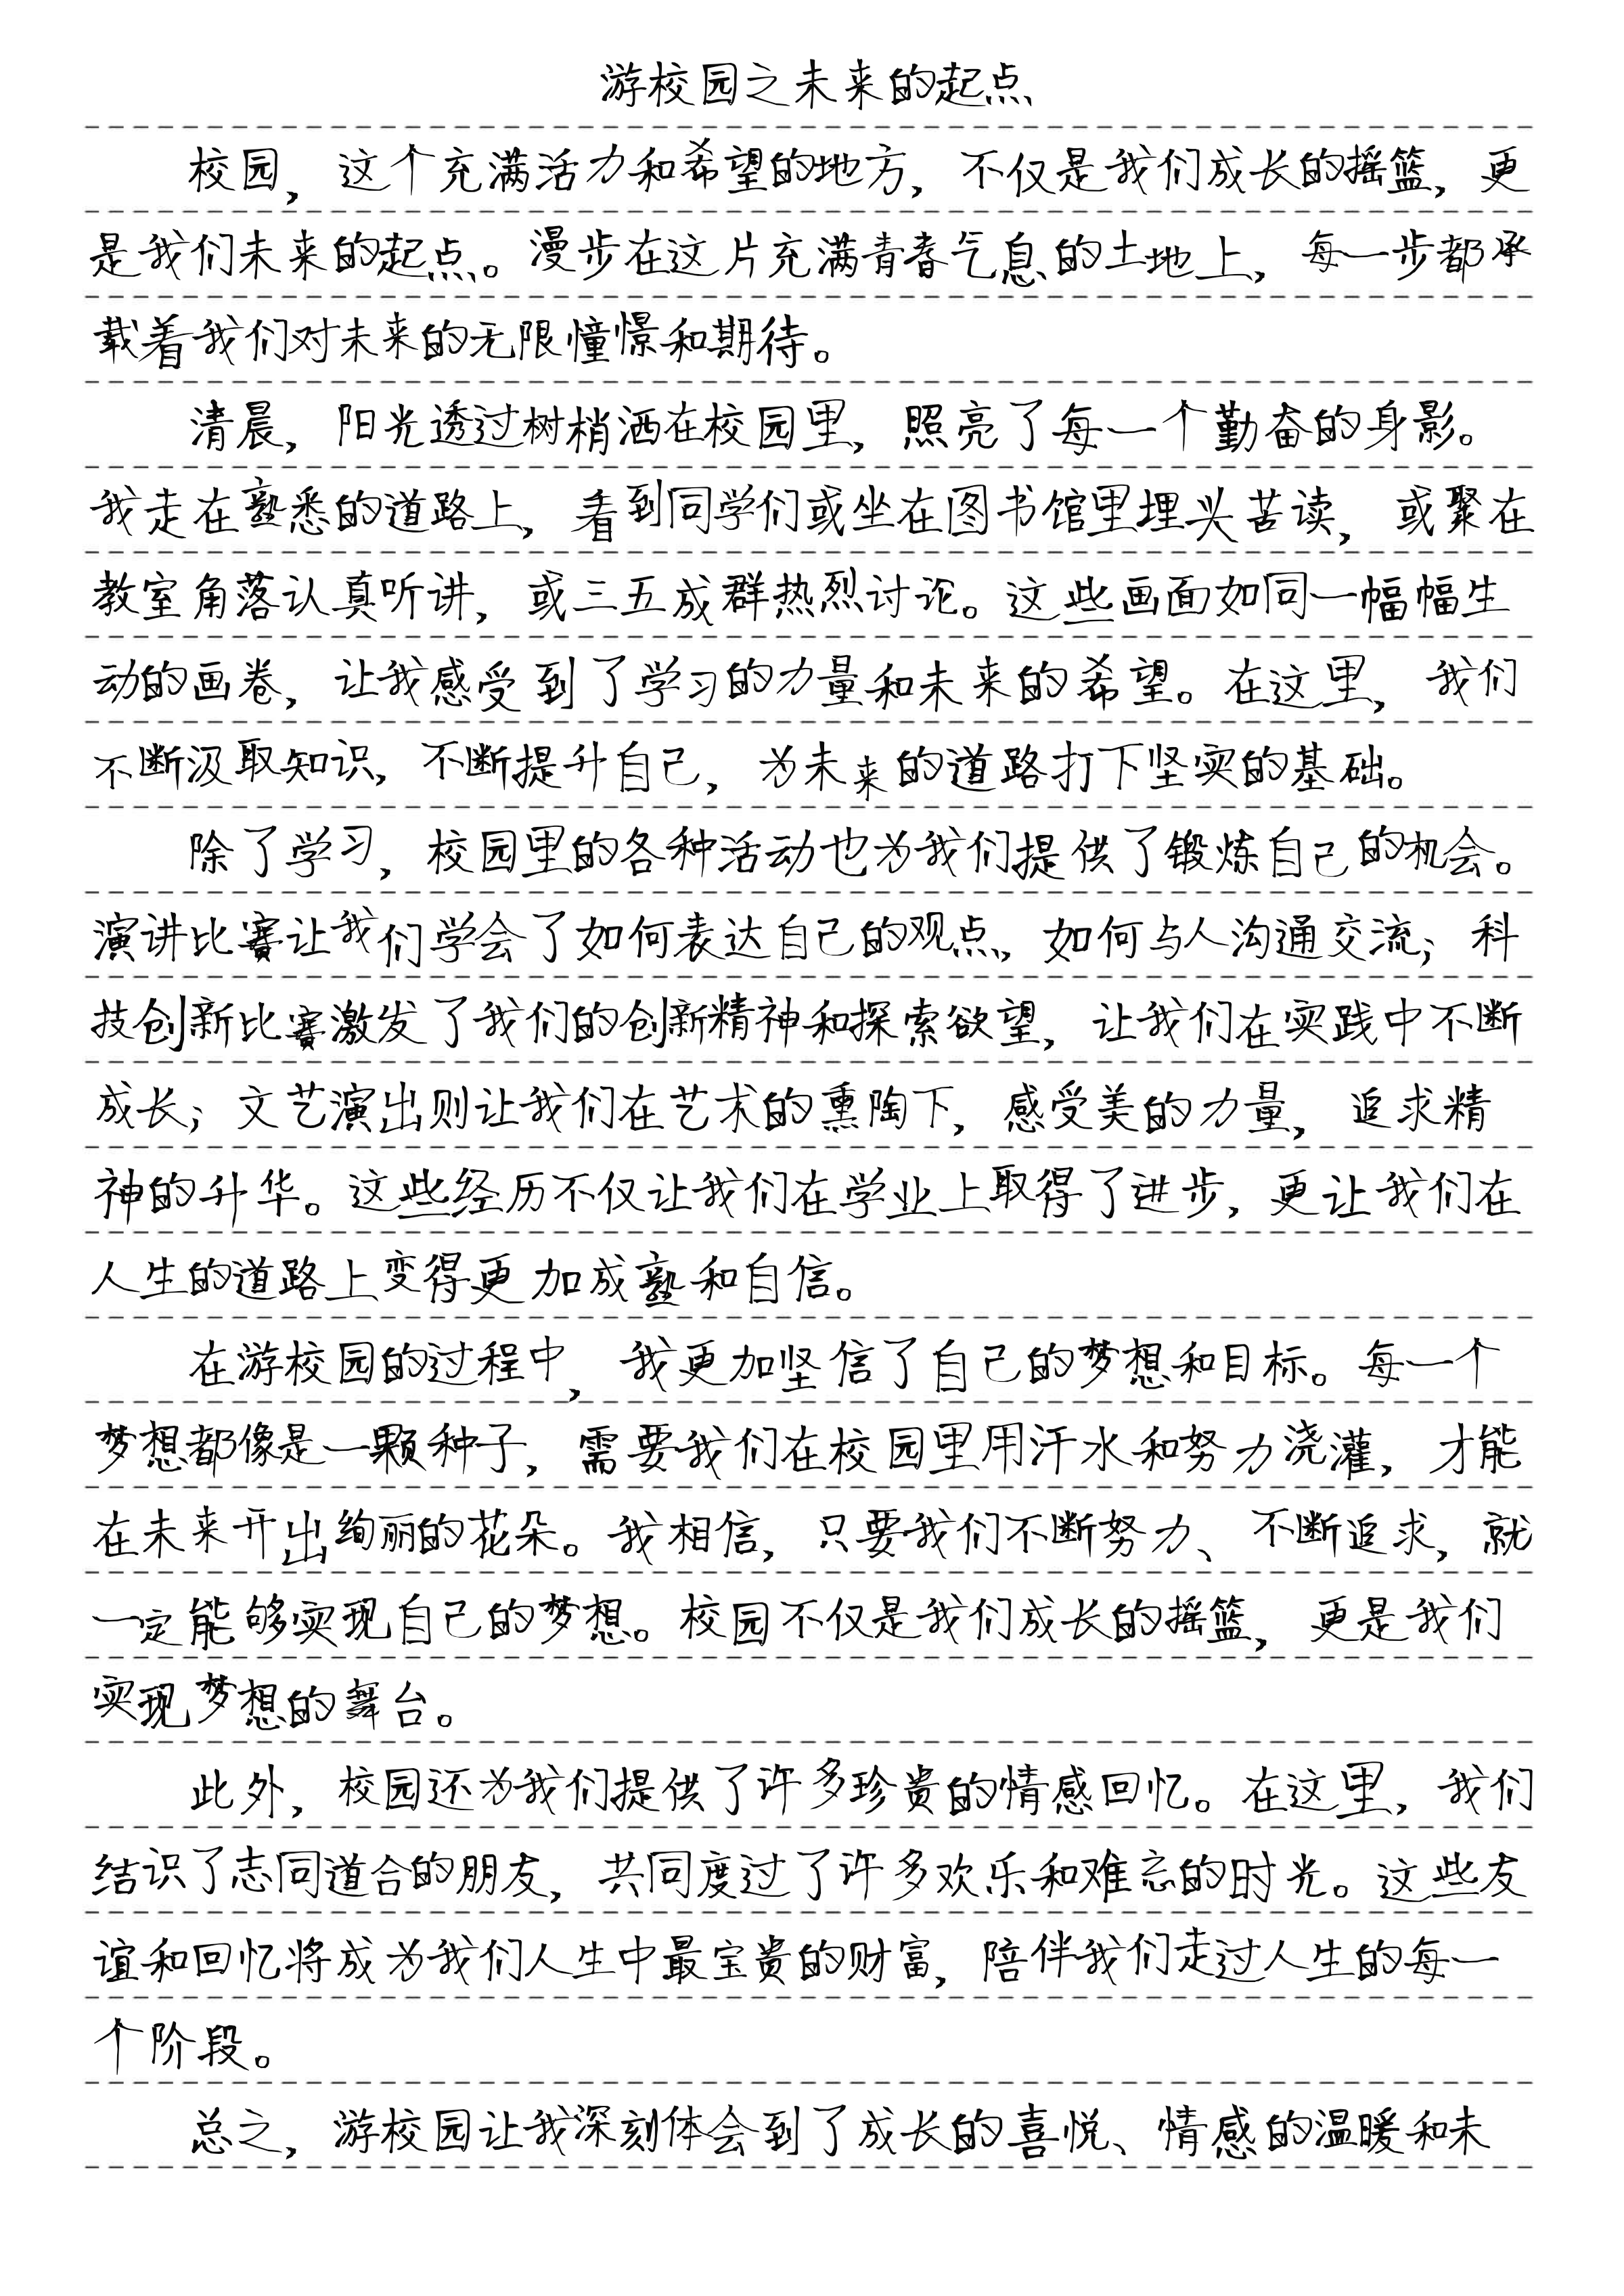 游校园之未来的起点
校园，这个充满活力和希望的地方，不仅是我们成长的摇篮，更
是我们未来的起点。漫步在这片充满青春气息的土地上，每一步都承
载着我们对未来的无限憧憬和期待。
清晨，阳光透过树梢洒在校园里，照亮了每一个勤奋的身影。
我走在熟悉的道路上，看到同学们或坐在图书馆里埋头苦读，或聚在
教室角落认真听讲，或三五成群热烈讨论。这些画面如同一幅幅生
动的画卷，让我感受到了学习的力量和未来的希望。在这里，我们
不断汲取知识，不断提升自己，为未来的道路打下坚实的基础。
除了学习，校园里的各种活动也为我们提供了锻炼自己的机会。
演讲比赛让我们学会了如何表达自己的观点、如何与人沟通交流；科
技创新比赛激发了我们的创新精神和探索欲望，让我们在实践中不断
成长；文艺演出则让我们在艺术的熏陶下，感受美的力量，追求精
神的升华。这些经历不仅让我们在学业上取得了进步，更让我们在
人生的道路上变得更加成熟和自信。
在游校园的过程中，我更加坚信了自己的梦想和目标。每一个
梦想都像是一颗种子，需要我们在校园里用汗水和努力浇灌，才能
在未来开出绚丽的花朵。我相信，只要我们不断努力、不断追求，就
一定能够实现自己的梦想。校园不仅是我们成长的摇篮，更是我们
实现梦想的舞台。
此外，校园还为我们提供了许多珍贵的情感回忆。在这里，我们
结识了志同道合的朋友，共同度过了许多欢乐和难忘的时光。这些友
谊和回忆将成为我们人生中最宝贵的财富，陪伴我们走过人生的每一
个阶段。
总之，游校园让我深刻体会到了成长的喜悦、情感的温暖和未